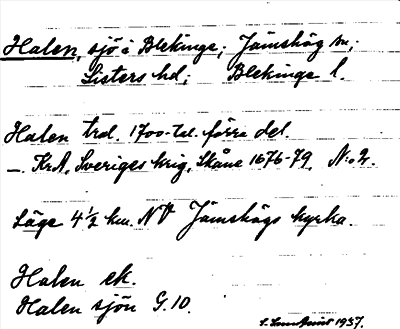 Halen, sjö i Blekinge; Jämshög sn;
Listers hd; Blekinge l.
Halen trol. 1700-tal. förra del.
—. KrA, Sveriges krig, Skåne 1676-79, N:o 2.
Läge 4 1/2 km. NV Jämshögs kyrka.
Halen ek.
Halen sjön G. 10.
1937.